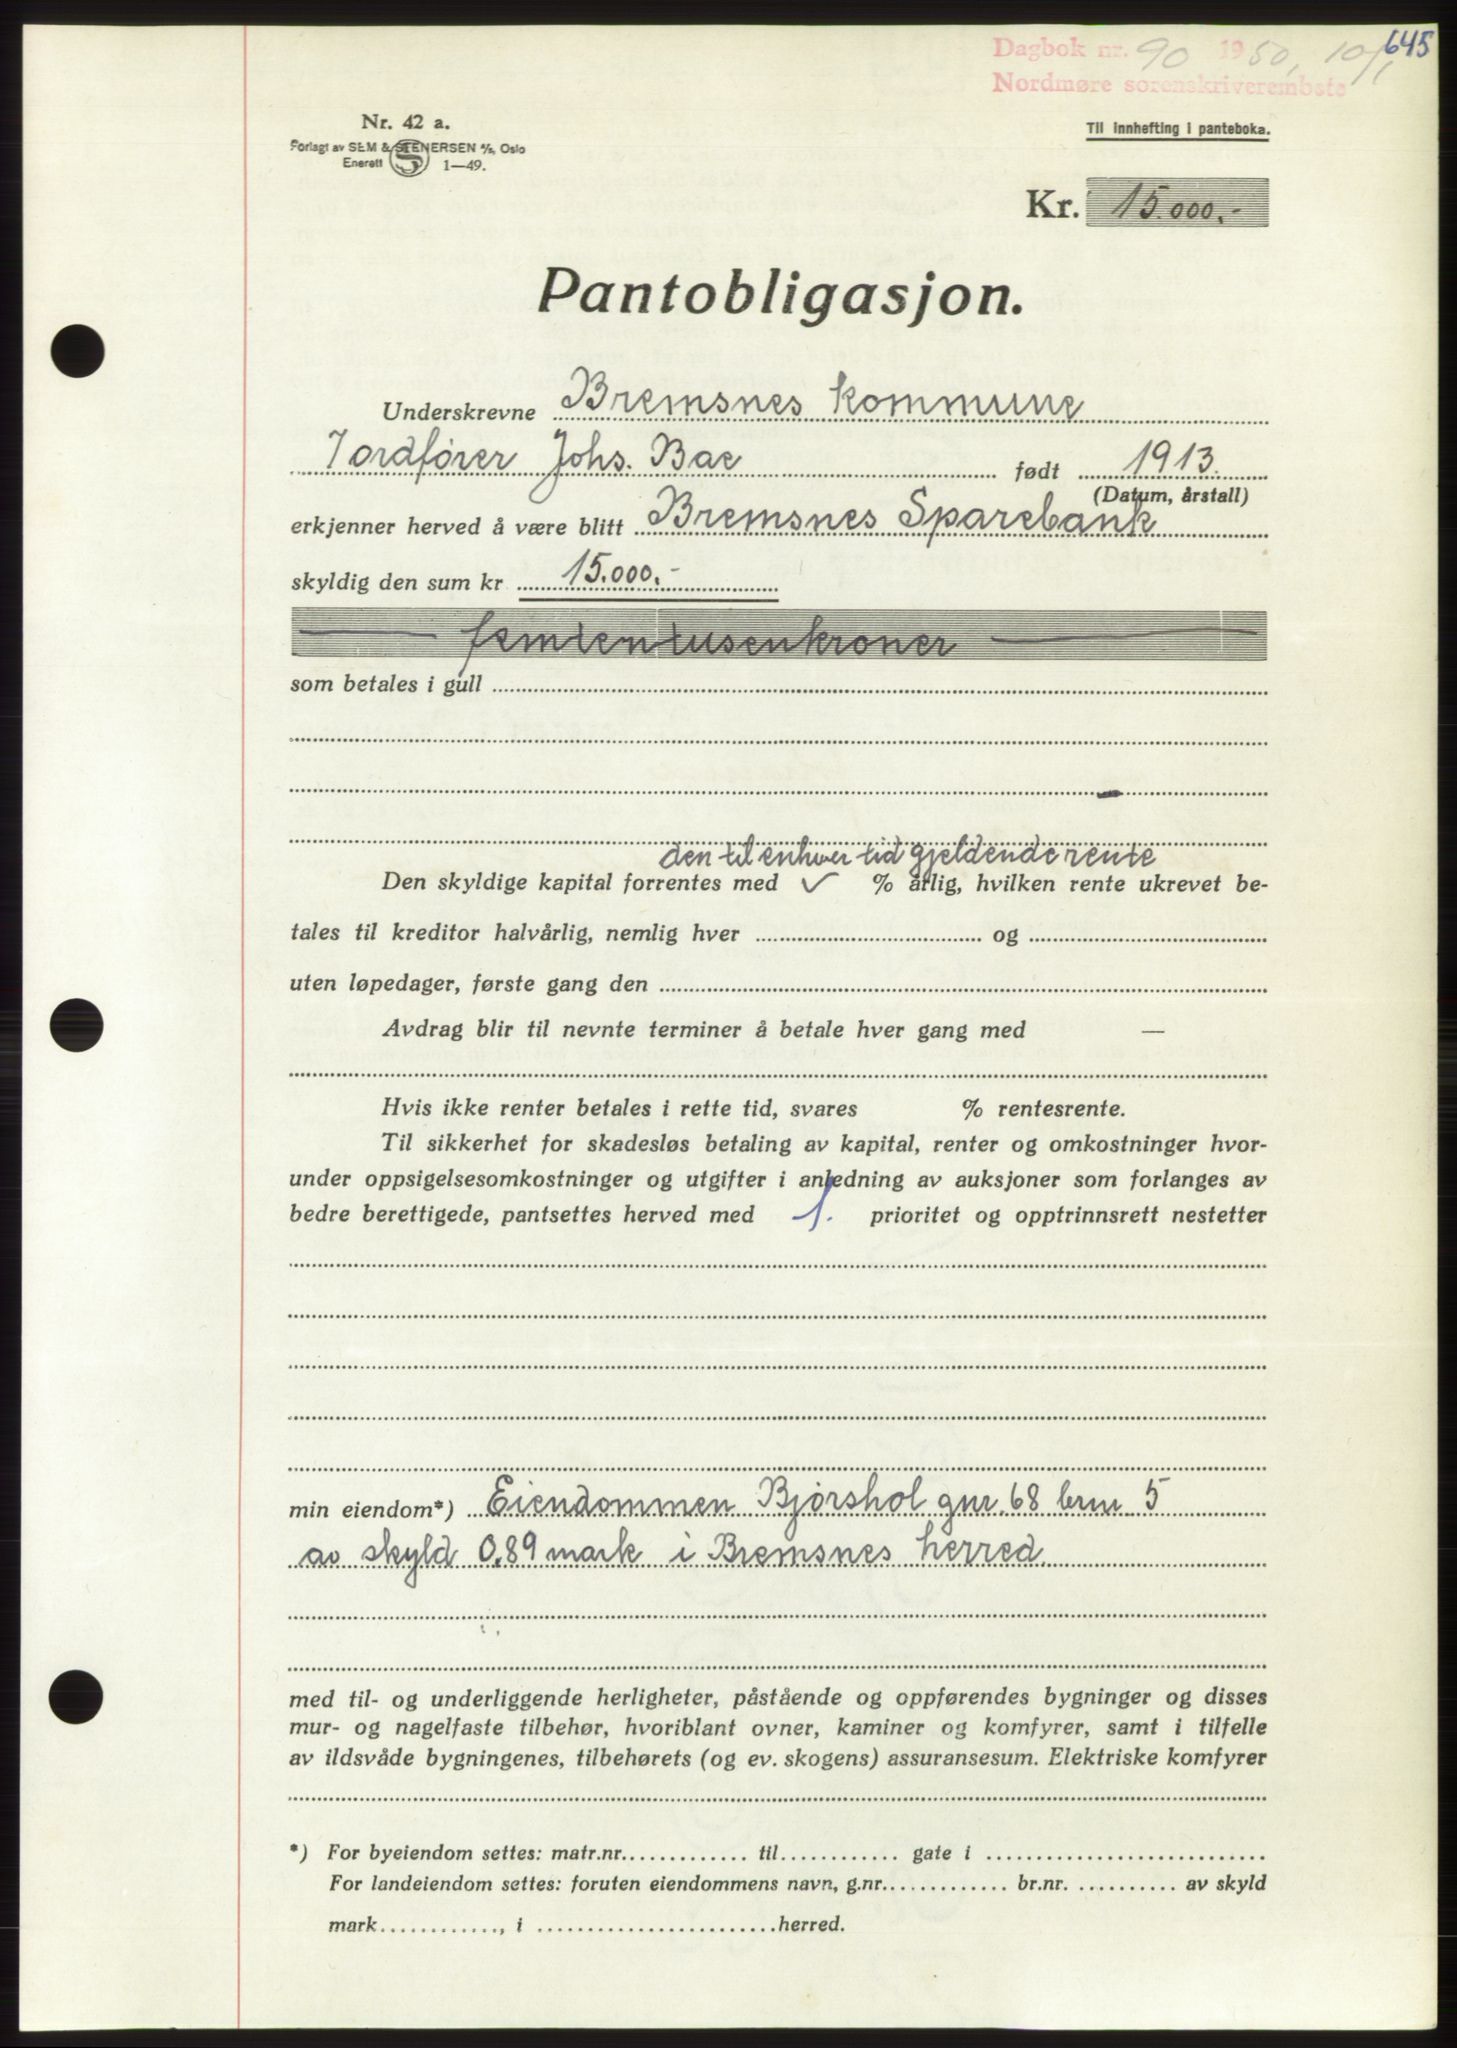 645
Dagbok nr. 90 1950, 10/1
Nordmøre sorenskriverembete
Nr. 42 a.
Forlagt av SEM & STENERSEN A/S, Oslo
Enerett S 1—49.
Til innhefting i panteboka.
Kr. 15.000.-
Pantobligasjon.
Underskrevne Bremsnes kommune
Vordfører Johs. Bae født 1913.
(Datum, årstall)
erkjenner herved å være blitt Bremsnes Sparebank
skyldig den sum kr 15.000.-
— femtentusenkroner —
som betales i gull
den til enhver tid gjeldende rente
Den skyldige kapital forrentes med ✓ % årlig, hvilken rente ukrevet be-
tales til kreditor halvårlig, nemlig hver og
uten løpedager, første gang den
Avdrag blir til nevnte terminer å betale hver gang med —
Hvis ikke renter betales i rette tid, svares % rentesrente.
Til sikkerhet for skadesløs betaling av kapital, renter og omkostninger hvor-
under oppsigelsesomkostninger og utgifter i anledning av auksjoner som forlanges av
bedre berettigede, pantsettes herved med 1. prioritet og opptrinnsrett nestetter
min eiendom*) Eiendommen Bjørshol gnr. 68 brnr 5
av skyld 0.89 mark i Bremsnes herred
med til- og underliggende herligheter, påstående og oppførendes bygninger og disses
mur- og nagelfaste tilbehør, hvoriblant ovner, kaminer og komfyrer, samt i tilfelle
av ildsvåde bygningenes, tilbehørets (og ev. skogens) assuransesum. Elektriske komfyrer
*) For byeiendom settes: matr.nr. til gate i
For landeiendom settes: foruten eiendommens navn, g.nr. br.nr. av skyld
mark , i herred.